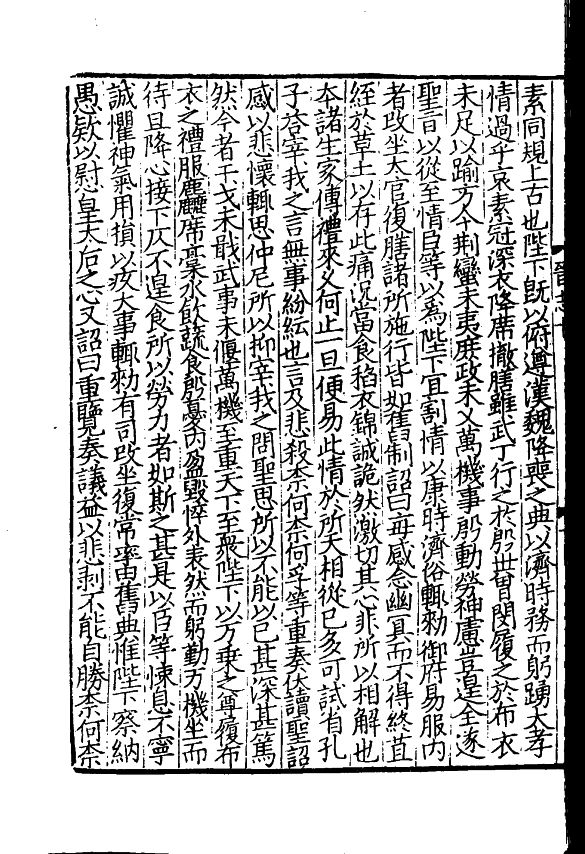 素同規上古也陛下既以俯遵漢魏降喪之典以濟時務而躬蹈大孝
情過乎哀素冠深衣降席撤膳雖武丁行之於殷世曾閔履之於布衣
未足以踰方今荆蠻未夷庶政未乂萬機事殷動勞神慮豈遑全遂
聖旨以從至情臣等以爲陛下宜割情以康時濟俗輒勑御府易服内
者改坐太官復膳諸所施行皆如舊制詔曰每感念幽冥而不得終苴
絰於草土以存此痛况當食稻衣錦誠詭然激切其心非所以相解也
本諸生家傳禮來乆何止一旦便易此情於所天相從已多可試省孔
子荅宰我之言無事紛紜也言及悲殺柰何柰何孚等重奏伏讀聖詔
感以悲懷輒思仲尼所以抑宰我之問聖思所以不能以已甚深甚篤
然今者干戈未戢武事未偃萬機至重天下至衆陛下以万乗之尊履布
衣之禮服麤席藁水飲蔬食殷憂内盈毀悴外表然而躬勤万機坐而
待旦降心接下仄不遑食所以勞力者如斯之甚是以臣等悚息不寧
誠懼神氣用損以疚大事輒勑有司改坐復常率由舊典惟陛下察納
愚款以慰皇太后之心又詔曰重覽奏議益以悲剥不能自勝柰何柰